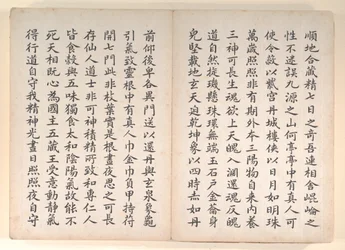 順地合藏精七日之奇吾連相舍崐崘之
性不迷誤九源之山何亭亭中有真人可
使令蔽以紫宮丹城樓俠以日月如明珠
萬歲照照非有期外本三陽物自來内養
三神可長生魂欲上天魄入淵還魂反魄
道自然旋璣懸珠環無端玉石戶金籥身
完堅載地玄天迴乾坤象以四時赤如丹
前仰後卑各異門送以還丹與玄泉象龜
引氣致靈根中有真人巾金巾負甲持符
開七門此非枝葉實是根晝夜思之可長
存仙人道士非可神積精所致和專仁人
皆食穀與五味獨食太和陰陽氣故能不
死天相既心為國主五藏王受意動靜氣
得行道自守我精神光晝日照照夜自守